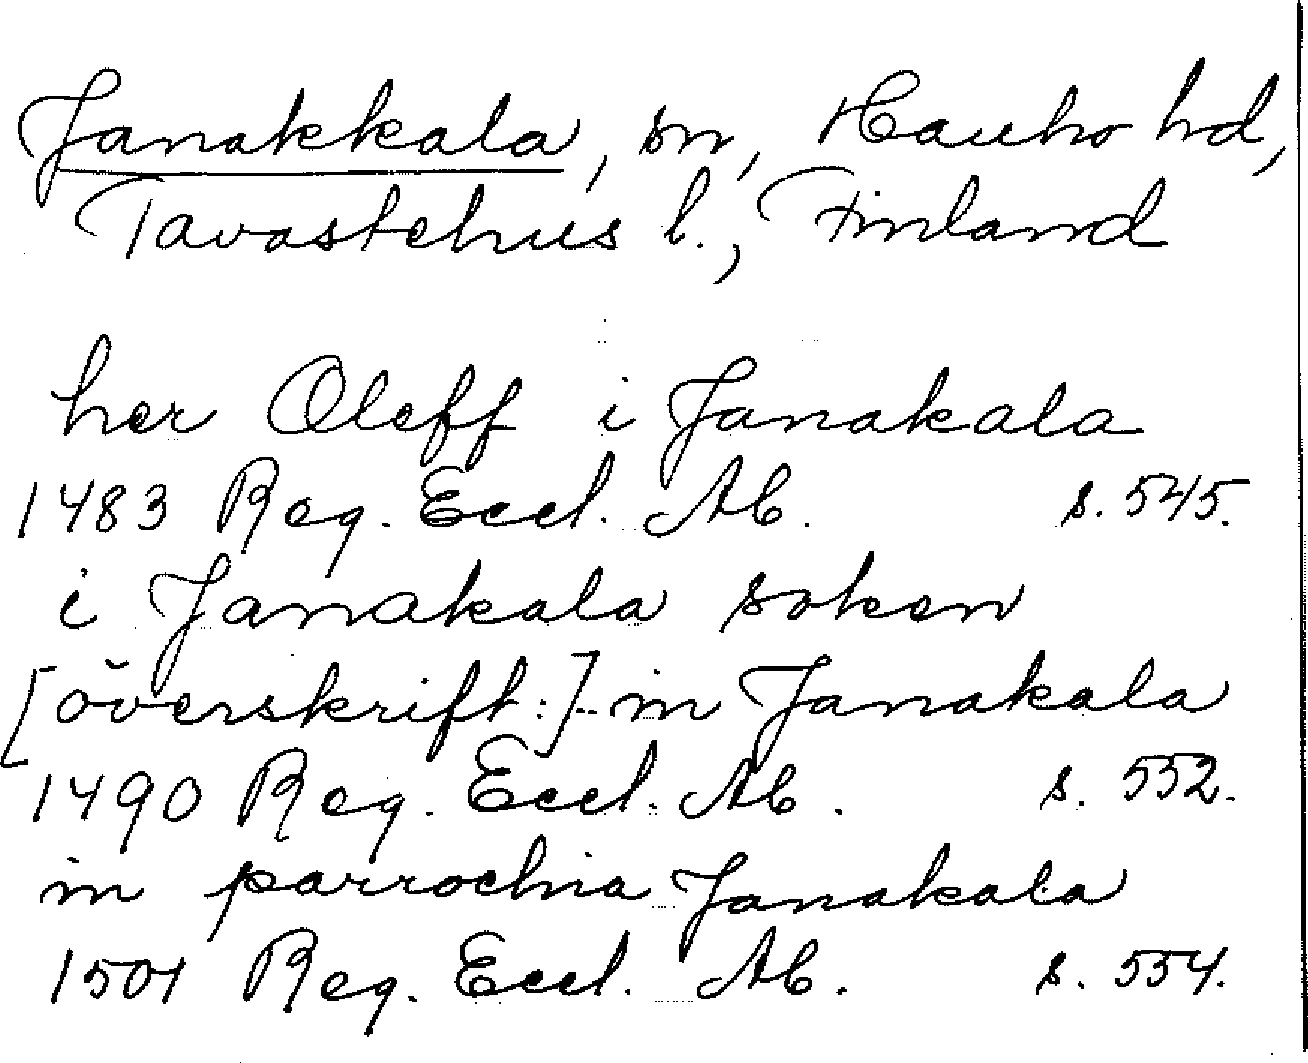 Janakkala, sn, Hauho hd,
Tavastehus l., Finland
her Oleff i Janakala
1483 Reg. Eccl. Ab. s. 545.
i Janakala soken
[överskrift:] in Janakala
1490 Reg. Eccl. Ab. s. 552.
in parrochia Janakala
1501 Reg. Eccl. Ab. s. 554.